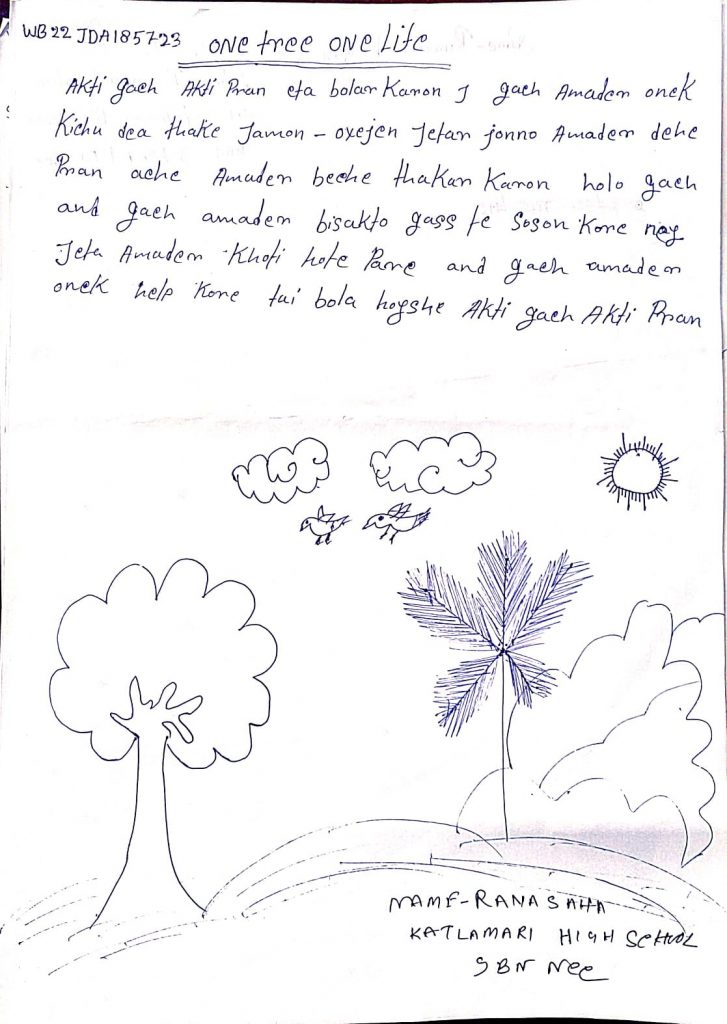 WB22 JDA185723
one tree one Life
Akti gach Akti Pran eta bolar Karon J gach Amader onek
Kichu dea thake Jamon - oxejen Jetar jonno Amader dehe
Pran ache Amader beche thakar Karon holo gach
and gach amader bisakto gass te Soson Kore nay
Jeta Amader Khoti hote Pare and gach amader
onek help Kore tai bola hoyshe Akti gach Akti Pran
NAME-RANA SAHA
KATLAMARI HIGH SCHOOL
SBN NCC